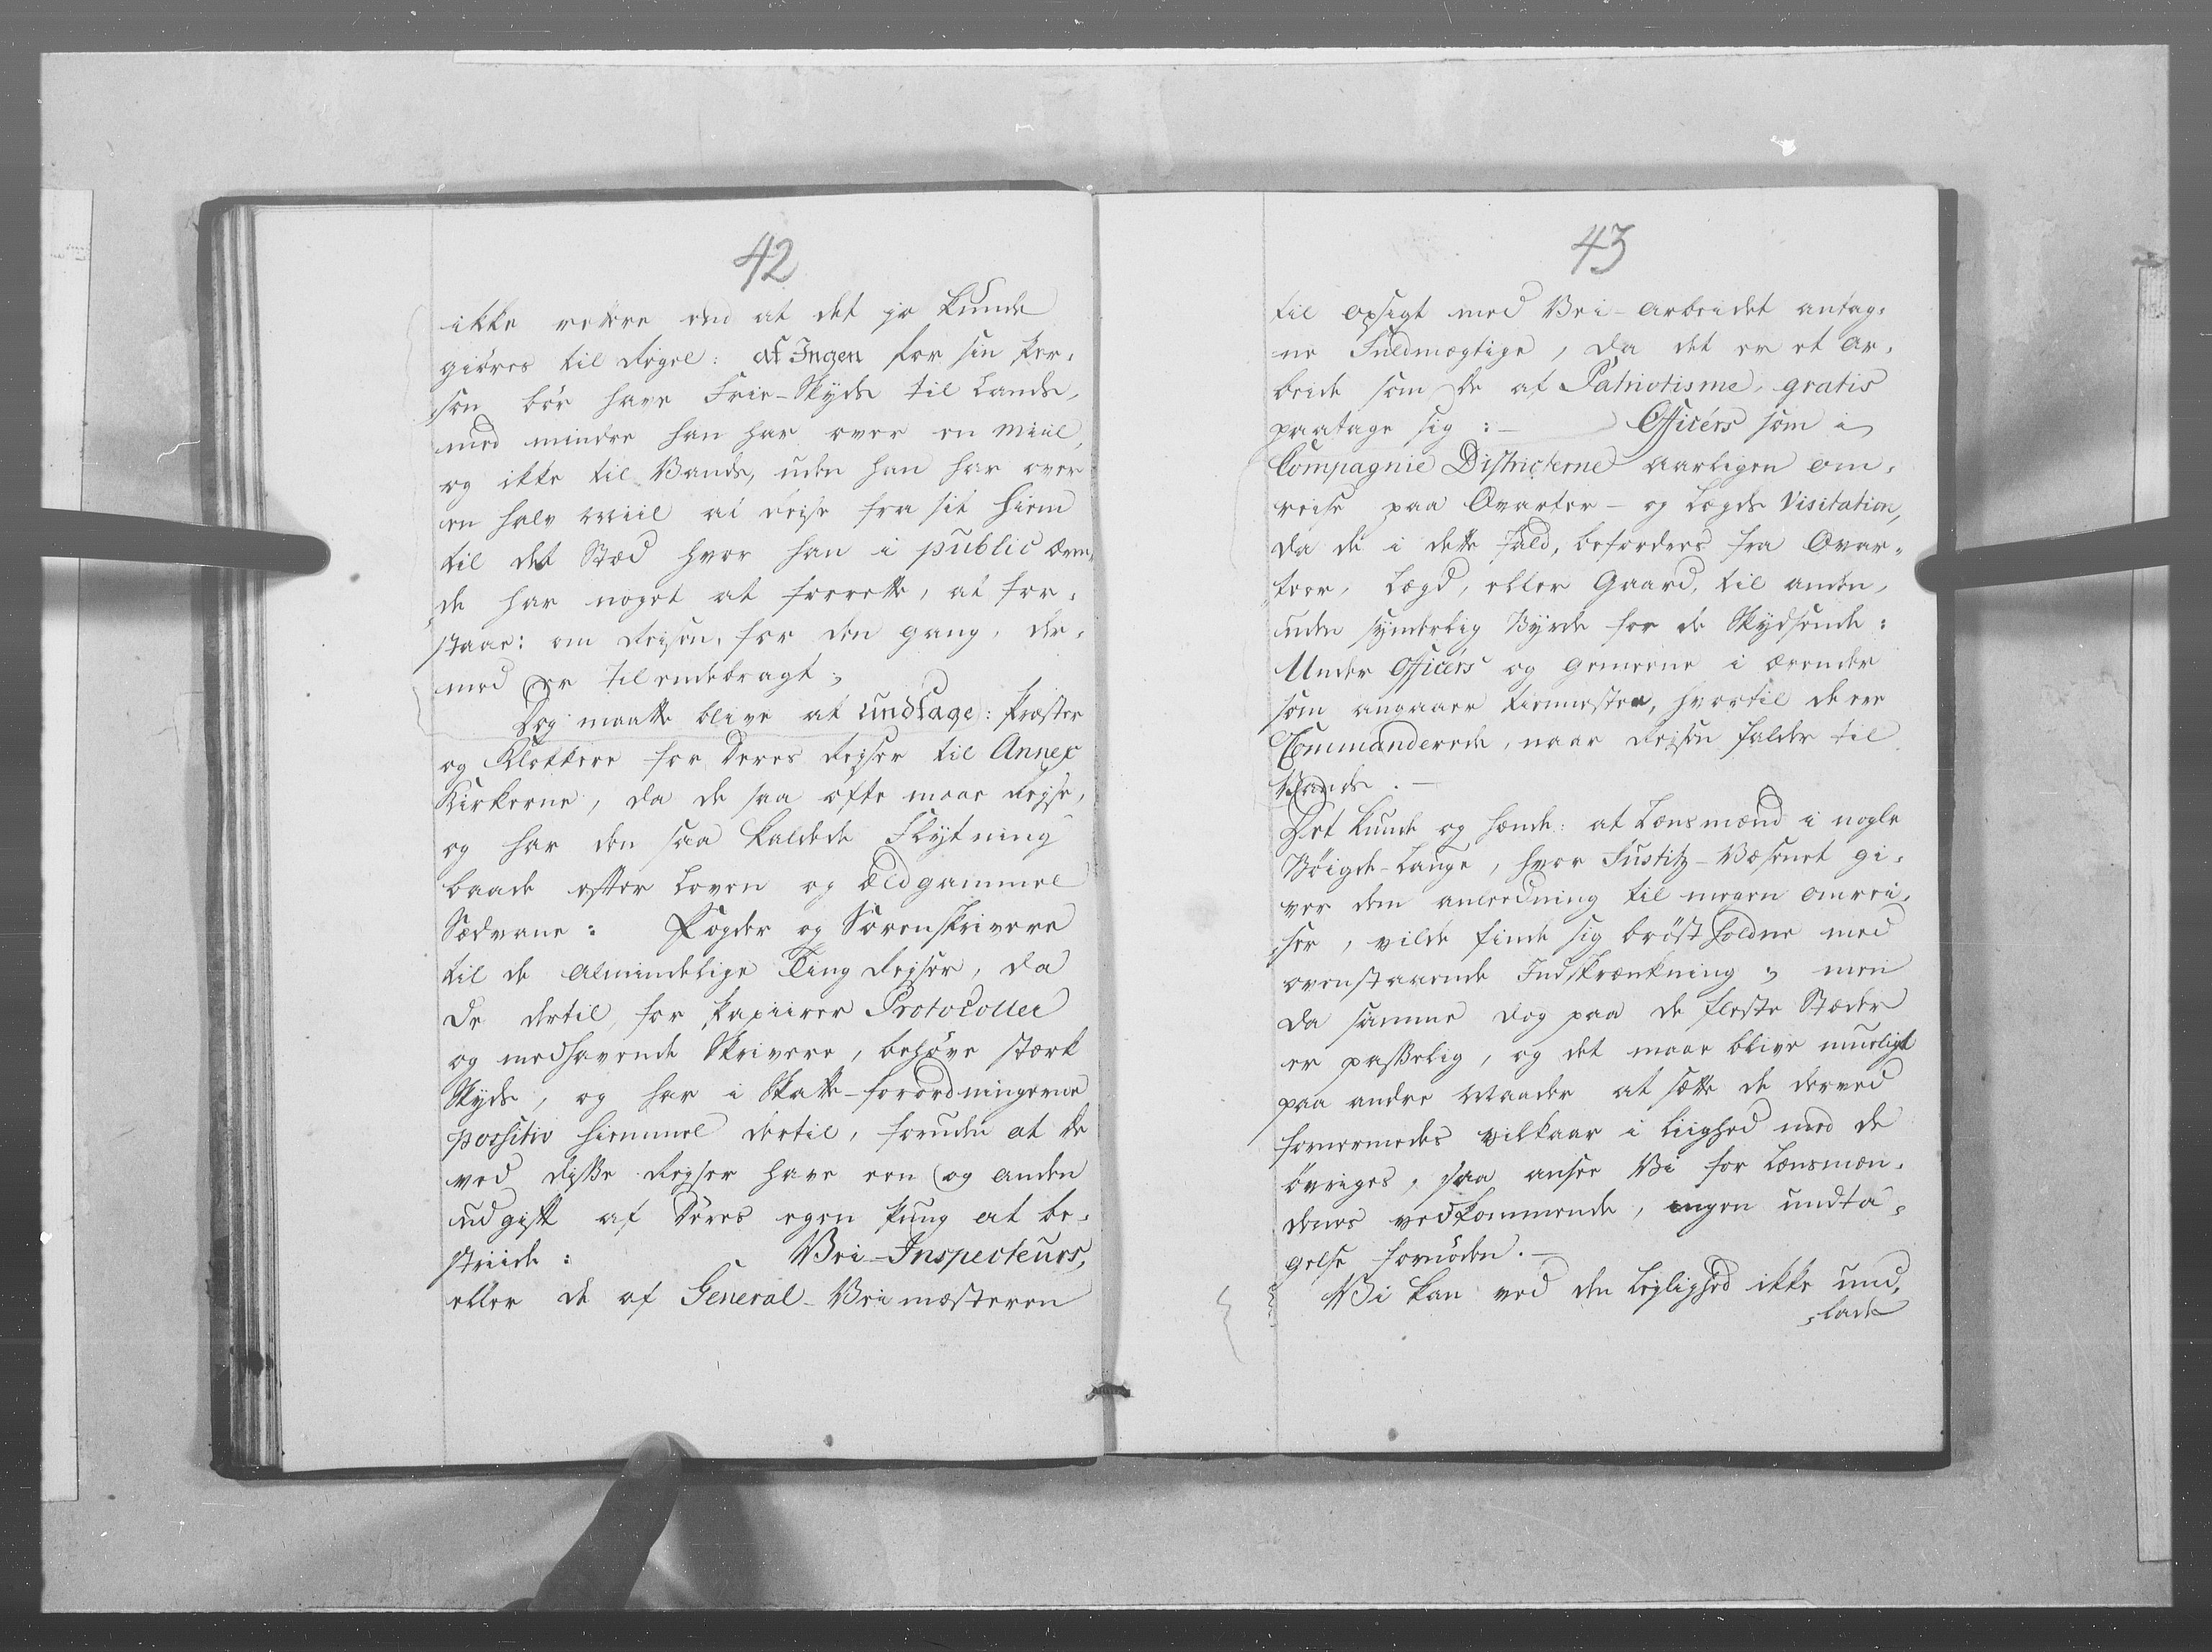 42
ikke rettere end at det jo kunde
giöres til Regel: at Ingen for sin Per-
son bör have Frie-Skyds til Lands,
med mindre han har over en Miil,
og ikke til Vands, uden han har over
en halv Miil at Reise fra sit Hiem
til det Stæd hvor han i public ærin-
de har noget at forrette, at for-
staae: om Reisen, for den gang, der-
med er til endebragt;
Dog maatte blive at undtage: Præster
og Klokkere for Deres Rejser til Annex
Kirkerne, da de saa ofte maae Rejse,
og har den saa kaldede Flytning
baade efter Loven og ældgammel
Sædvane: Fogder og Sorenskrivere
til de Almindelige Ting Rejser, da
De dertil, for Papiirer Protocoller
og medhavende Skrivere, behøve stærk
Skyds, og har i Skatte-forordningerne
positiv Hiemmel dertil, foruden at de
ved disse Rejser have een og anden
udgift af Deres egen Pung at be-
striide: Vei-Inspecteurs,
eller de af General-Veimæsteren
43
til opsigt med Vei-Arbeidet antag-
ne Fuldmægtige, da det er et Ar-
beide som de af Patriotisme, gratis
paatage sig:- Officérs som i
Compagnie Districterne aarligen om-
reise paa Qvarteer- og Lægds Visitation,
da de i dette fald, befordres fra Qvar-
teer, Lægd, eller Gaard, til anden,
uden synderlig Byrde for de Skydsende:
Under Officérs og Gemeene i ærender
som angaaer Tienesten, hvortil de ere
Commanderede, naar Rejsen falder til
Vands.-
Det kunde og hænde: at Lænsmænd i nogle
Böigde-Lauge, hvor Justitz-Væsenet gi-
ver dem anledning til megen omrei-
ser, vilde finde sig bröstholdne med
ovenstaaende Indskrænkning; men
da samme dog paa de fleste Stæder
er passelig, og det maae blive mueligt
paa andre Maader at sætte de derved
fornermedes vilkaar i Liighed med de
övriges, saa ansee Vi for Lænsmæn-
denes vedkommende, ingen undta-
gelse fornöden.-
Vi kan ved den Leylighed ikke und-
lade